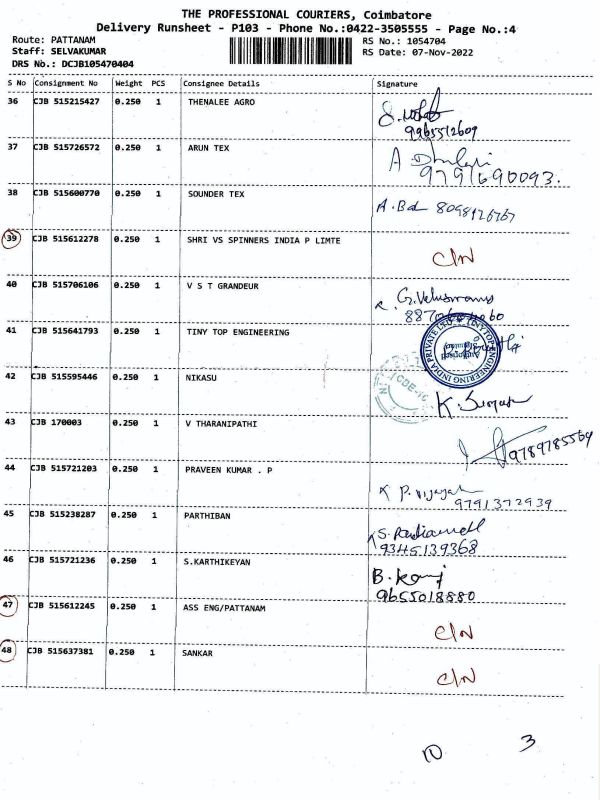 THE PROFESSIONAL COURIERS, Coimbatore
Delivery Runsheet - P103 - Phone No.:0422-3505555 - Page No.:4
Route: PATTANAM
RS No.: 1054704
Staff: SELVAKUMAR
RS Date: 07-Nov-2022
DRS No.: DCJB105470404
S No Consignment No Weight PCS Consignee Details Signature
36 CJB 515215427 0.250 1 THENALEE AGRO
9965512609
37 CJB 515726572 0.250 1 ARUN TEX A
9791690093.
38 CJB 515600770 0.250 1 SOUNDER TEX A.Bal 8098126767
39 CJB 515612278 0.250 1 SHRI VS SPINNERS INDIA P LIMTE
C/N
40 CJB 515706106 0.250 1 V S T GRANDEUR
G.Veluswamy
41 CJB 515641793 0.250 1 TINY TOP ENGINEERING
42 CJB 515595446 0.250 1 NIKASU
K.
43 CJB 170003 0.250 1 V THARANIPATHI
9789785569
44 CJB 515721203 0.250 1 PRAVEEN KUMAR . P
P.Vijayah
9791372939
45 CJB 515238287 0.250 1 PARTHIBAN
S.
9345139368
46 CJB 515721236 0.250 1 S.KARTHIKEYAN
B.
9655018880
47 CJB 515612245 0.250 1 ASS ENG/PATTANAM
C/N
48 CJB 515637381 0.250 1 SANKAR
C/N
10 3